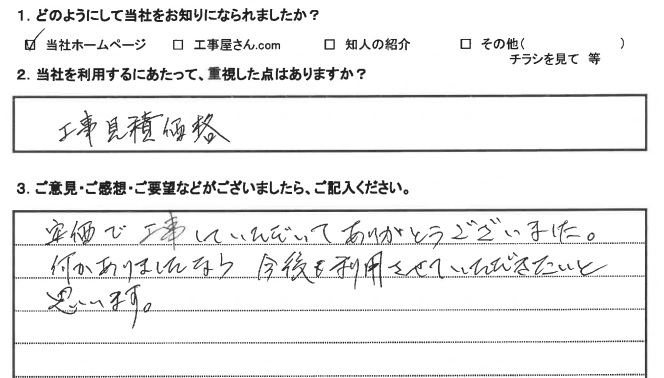 1. どのようにして当社をお知りになられましたか？
☑ 当社ホームページ □ 工事屋さん.com □ 知人の紹介 □ その他( )
チラシを見て 等
2. 当社を利用するにあたって、重視した点はありますか？
工事見積価格
3. ご意見・ご感想・ご要望などがございましたら、ご記入ください。
安価で工事していただいてありがとうございました。
何かありましたなら 今後も利用させていただきたいと
思います。